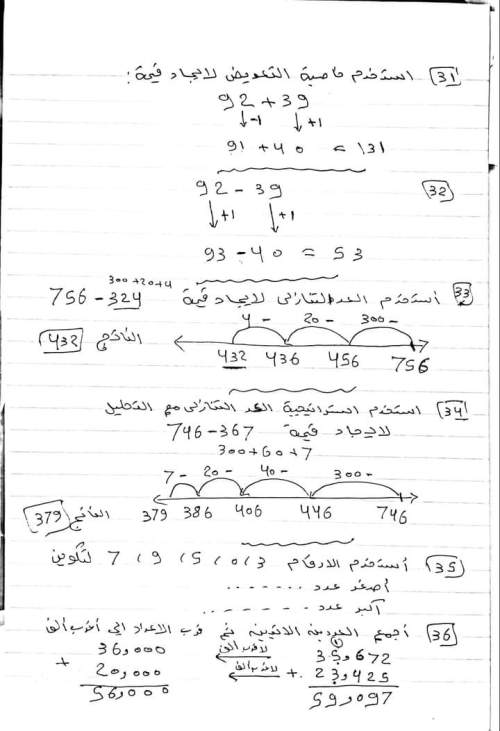 31 استخدم خاصية التعويض لايجاد قيمة :
92 + 39
↓-1 ↓+1
91 + 40 = 131
32
92 - 39
↓+1 ↓+1
93 - 40 = 53
33 أستخدم العد التنازلى لايجاد قيمة 756 - 324
300+20+4
4- 20- 300-
الناتج 432
432 436 456 756
34 استخدم استراتيجية العد التنازلى مع التحليل
لايجاد قيمة 746-367
300+60+7
7- 20- 40- 300-
379 386 406 446 746
الناتج 379
35 أستخدم الارقام 3 ، 0 ، 5 ، 9 ، 7 لتكوين
أصغر عدد .......
أكبر عدد .......
36 أجمع العددين الاتيين ثم قرب الاعداد الي أقرب ألف
35,672 لأقرب ألف 36,000
+ 23,425 لأقرب ألف + 20,000
59,097 56,000